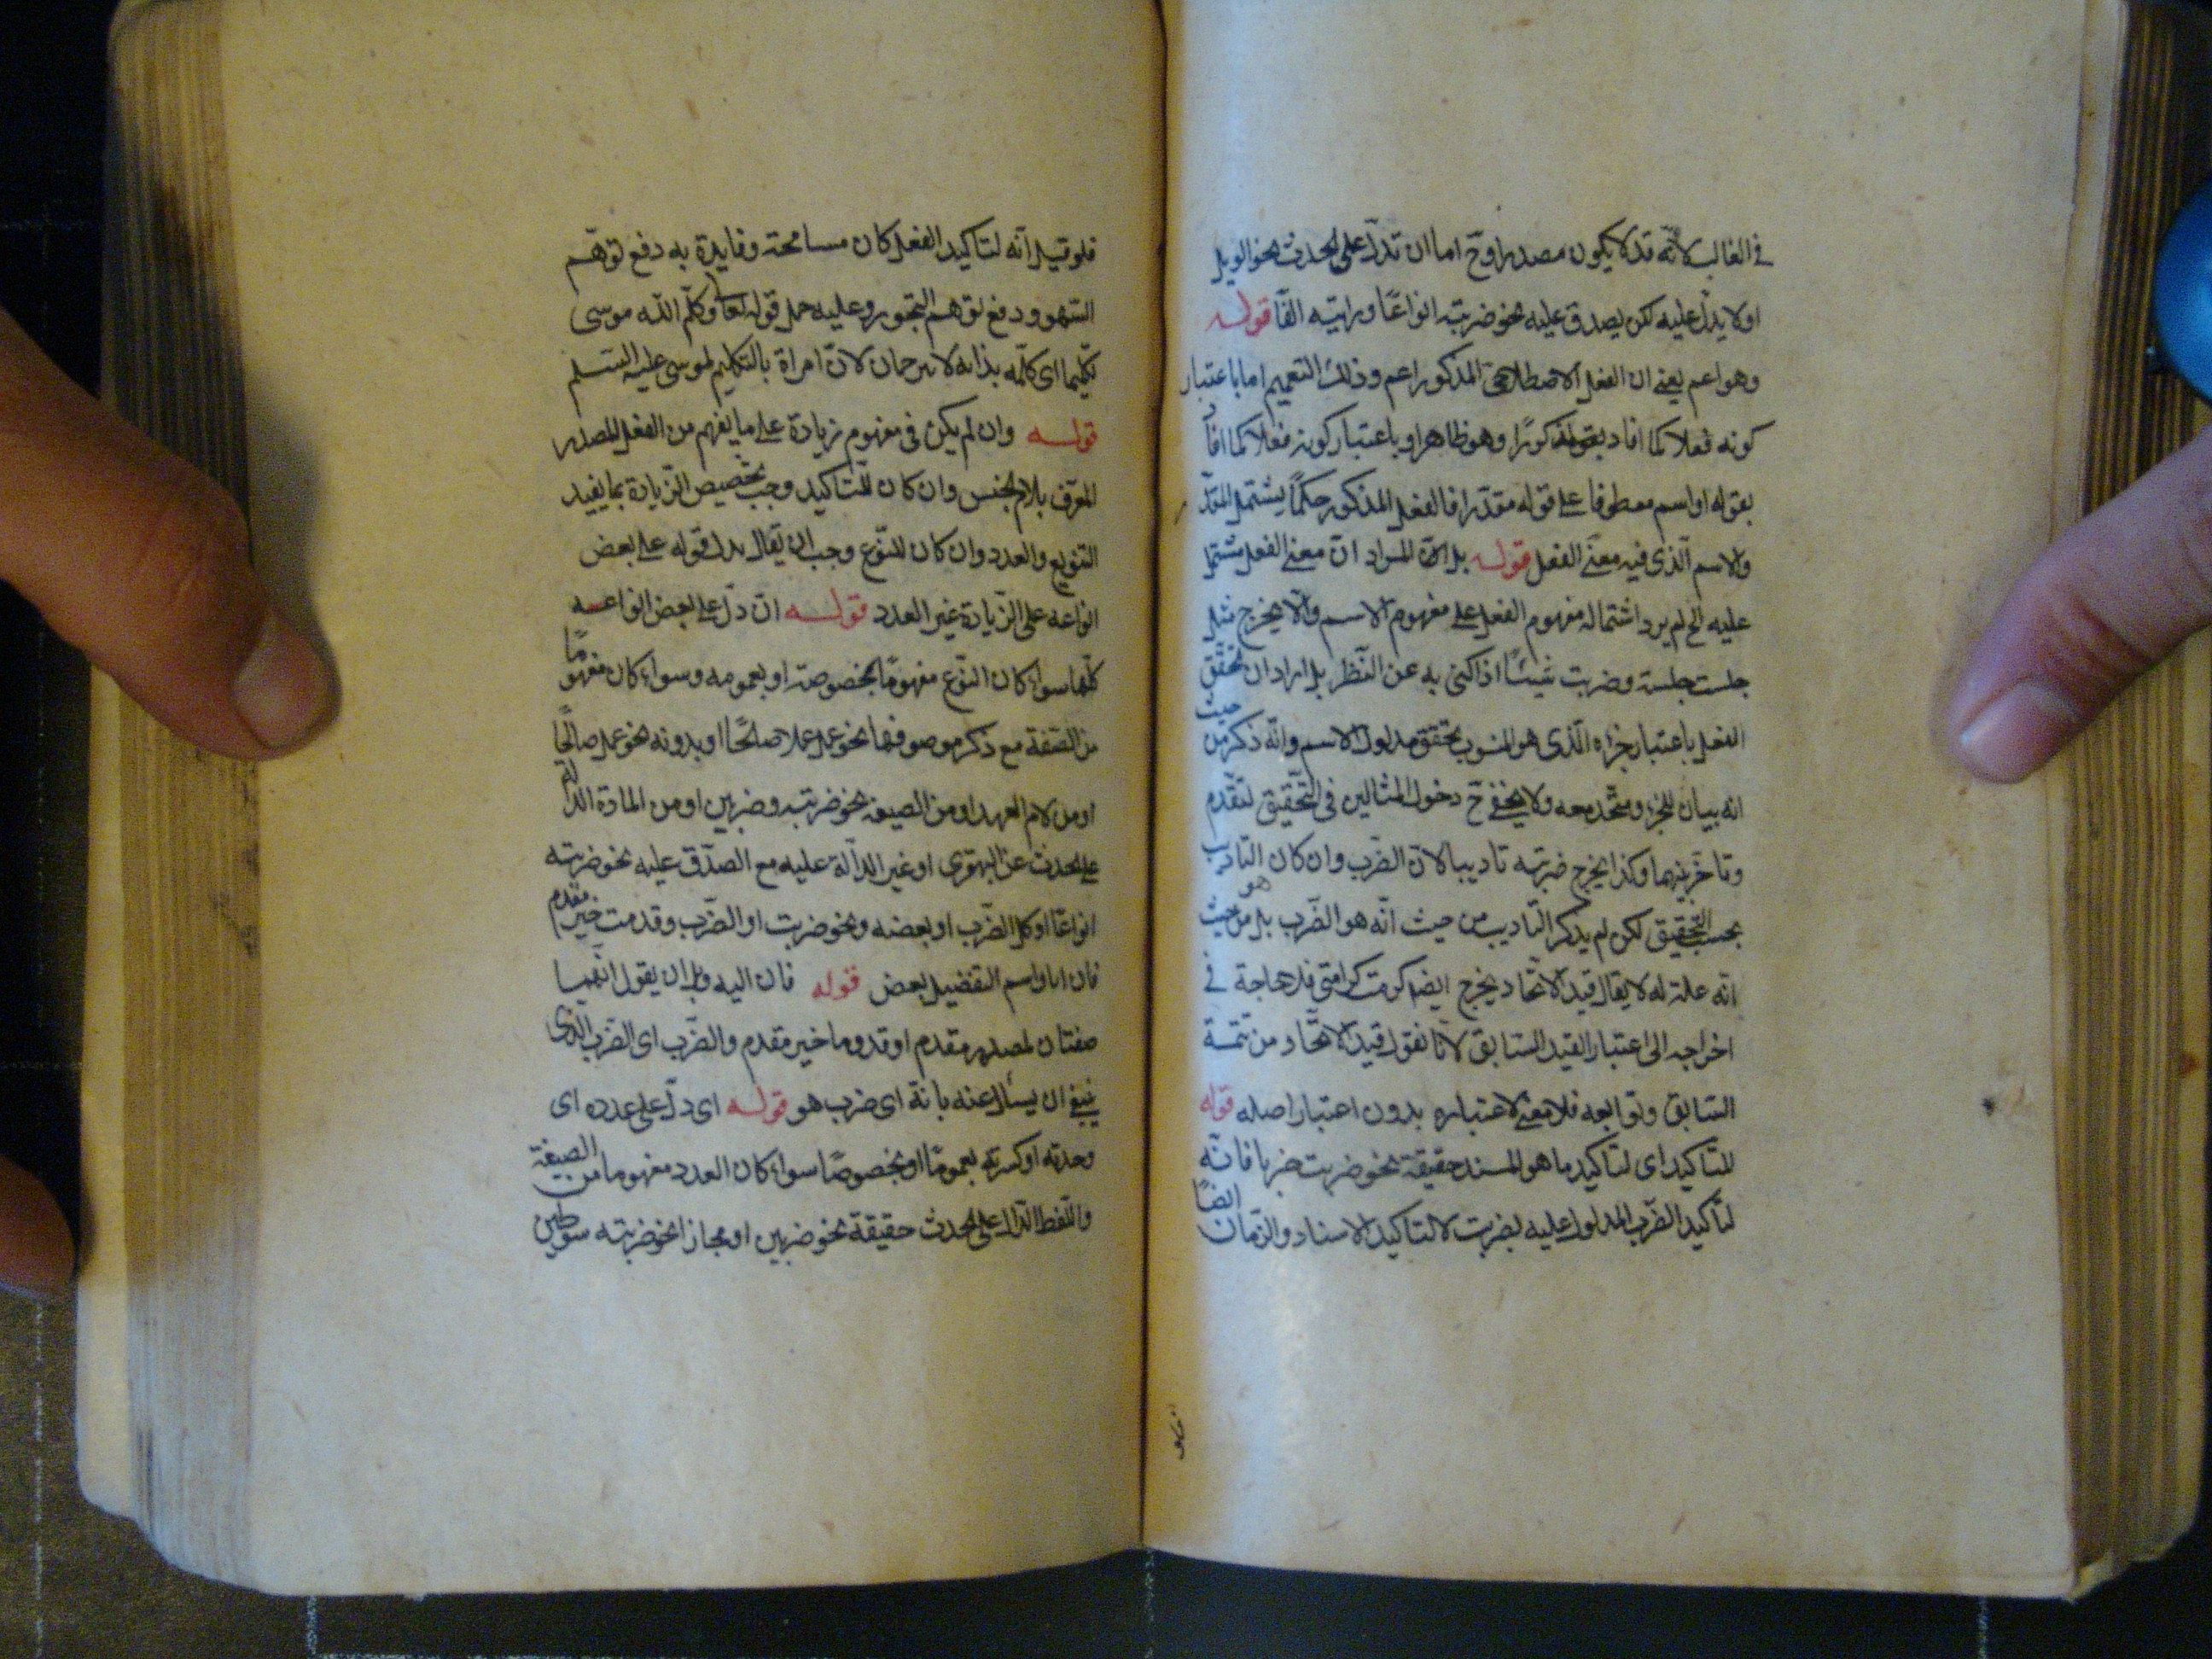 في الغالب لانّه قد لا يكون مصدرا وح اما ان تدلّ على الحدث نحو الويل
اولا يدلّ عليه لكن يصدق عليه نحو ضربته انواعًا ورايته الفًا قولـه
وهو اعم يعنى ان الفعل الاصطلاحى المذكور اعم وذلك التعميم اما باعتبار
كونه فعلا كما افاد بقوله مذكورًا وهو ظاهر او باعتبار كونه فعلا كما افاد
بقوله او اسم معطوفا على قوله مقدّرا فالفعل المذكور حكمًا يشتمل المقدّر
والاسم الّذى فيه معنى الفعل قولـه بل انّ المراد انّ معنى الفعل مشتمل
عليه الخ لم يرد اشتمال مفهوم الفعل على مفهوم الاسم والّا يخرج مثل
جلست جلسة وضربت شيئًا اذا كنى به عن النّظر بل اراد ان تحقّق
الفعل باعتبار جزاه الّذى هو المنسوب تحقق مدلول الاسم وانّه ذكر من حيث
انه بيان للجزء ومتّحد معه ولا يخفى ح دخول المثالين في التّحقيق لتقدّم
وتاخّر بينهما وكذا يخرج ضربته تاديبا لانّ الضّرب وان كان التّاديب
بحسب التّحقيق لكن لم يذكر التّاديب من حيث انّه هو الضّرب بل من حيث هو
انّه علّة له لا يقال قيد الاتّحاد يخرج ايضا كرهت كراهتى فلا حاجة في
اخراجه الى اعتبار القيد السّابق لانّا نقول قيد الاتّحاد من تتمّـة
السّابق وتوابعه فلا معنى لاعتباره بدون اعتبار اصله قوله
للتّاكيد اى لتاكيد ما هو المسند حقيقة نحو ضربت ضربا فانّه
لتاكيد الضّرب المدلول عليه بضربت لا لتاكيد الاسناد والزّمان ايضًا
فلو قيل انّه لتاكيد الفعل كان مسامحة وفايدة به دفع توهّم
السّهو ودفع توهم التّجوز وعليه حمل قوله تعا وكلّم الله موسى
تكليما اى كلّمه بذاته لا ترجمان لانّ امراة بالتكليم لموسى عليه السّلم
قولـه وان لم يكن في مفهومه زيادة على ما يفهم من الفعل المصدر
المعرّف بلام الجنس وان كان للتّاكيد وجب تخصيص الزّيادة بما يفيد
التنويع والعدد وان كان للنّوع وجب ان يقال بدل قوله على بعض
انواعه على الزّيادة غير العدد قولـه ان دلّ على بعض انواعـه
كلّها سواء كان النّوع مفهومًا بخصوصه او بعمومه وسواء كان مفهومًا
من الصّفة مع ذكر موصوفها نحو عمل عملا صالحًا او بدونه نحو عمل صالحًا
او من لام العهد او من الصيغة نحو ضربته وضربين او من المادة الدّالة
على الحدث نحو القهقرى او غير الدالّة عليه مع الصّدق عليه نحو ضربته
انواعًا او كلّ الضّرب او بعضه ونحو ضربت او الضّرب وقدمت خير مقدم
فان ايا واسم التفضيل بعض قوله فان اليه وله ان يقول انّهمـا
صفتان لمصدر مقدم او قدوما خير مقدم والضّرب اى الضّرب الّذى
ينبغى ان يسأل عنه بانّه اى ضرب هو قولـه اى دلّ على عدده اى
وحدته او كثرته بعمومًا او بخصوصًا سواء كان العدد مفهوما من الصيغة
واللّفظ الدّال على الحدث حقيقة نحو ضربين او مجازا نحو ضربته سوطين